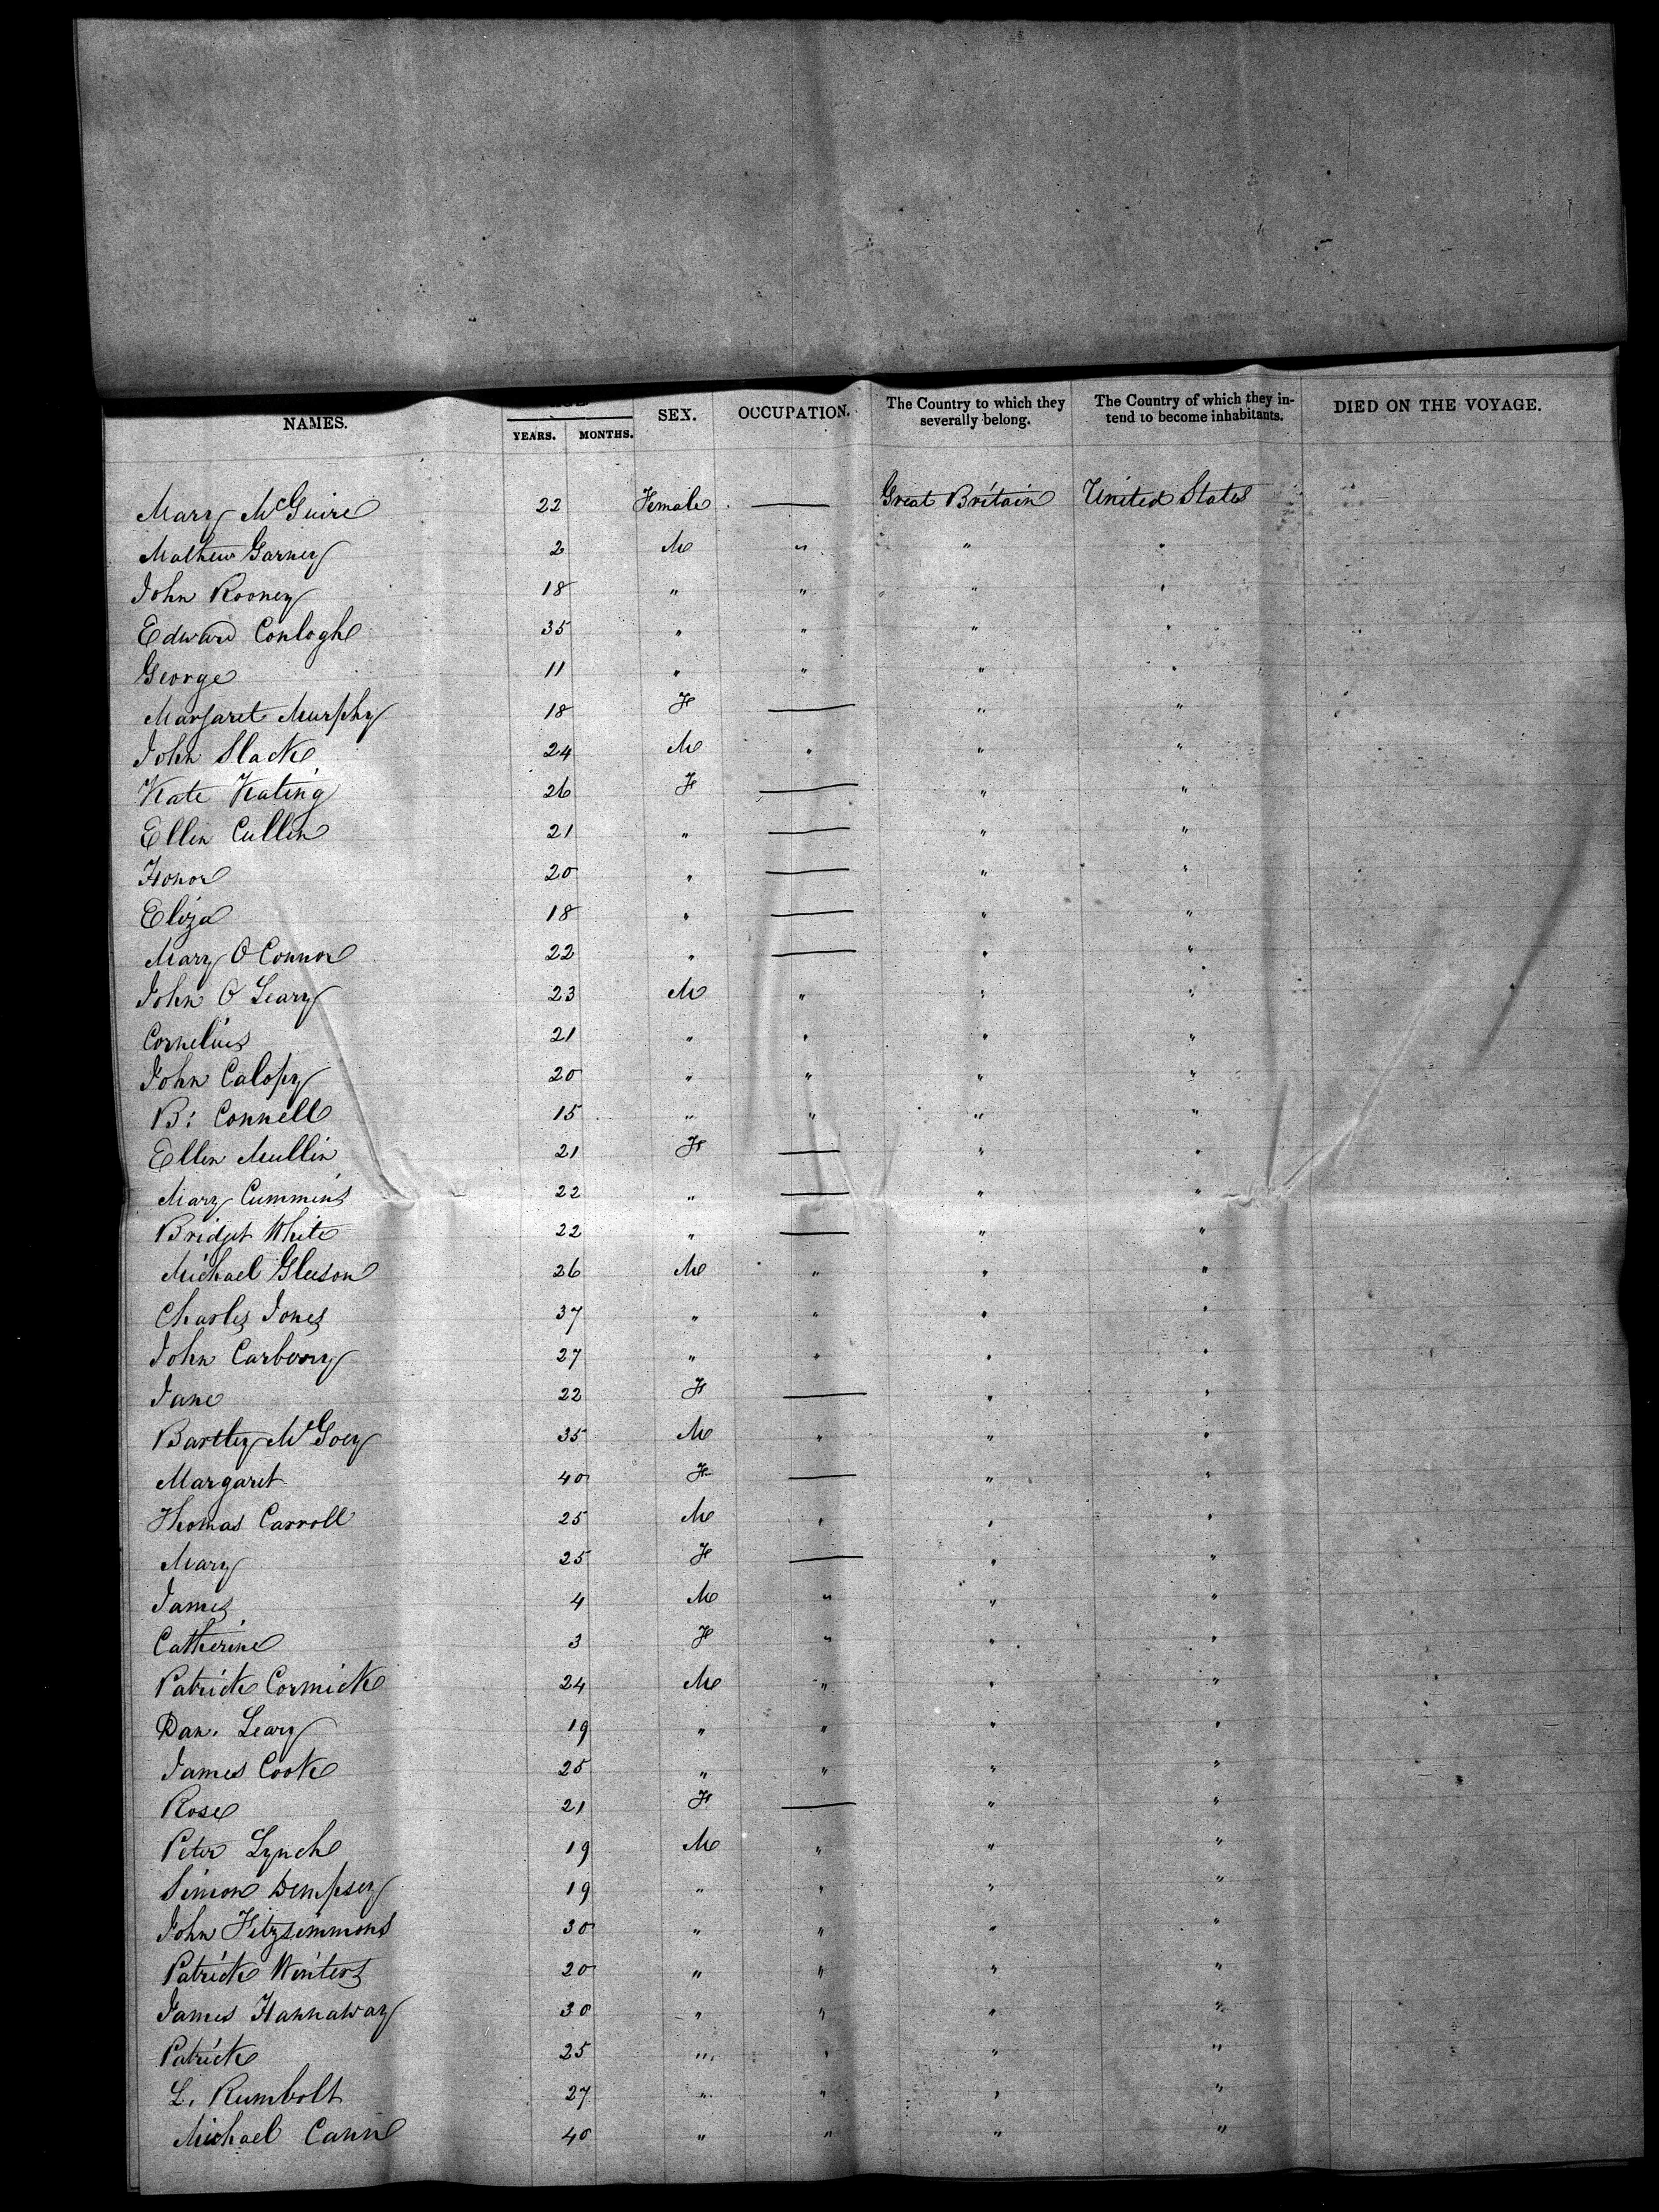 NAMES. YEARS. MONTHS. SEX. OCCUPATION. The Country to which they severally belong. The Country of which they intend to become inhabitants. DIED ON THE VOYAGE.
Mary McGuire 22 Female — Great Britain United States
Mathew Garney 2 M " " "
John Rooney 18 " " " "
Edward Conloghe 35 " " " "
George 11 " " " "
Margaret Murphy 18 F — " "
John Slack 24 M " " "
Kate Keating 26 F — " "
Ellen Cullen 21 " — " "
Honor 20 " — " "
Eliza 18 " — " "
Mary O Connor 22 " — " "
John O Leary 23 M " " "
Cornelius 21 " " " "
John Calopy 20 " " " "
B: Connell 15 " " " "
Ellen Mullin 21 F — " "
Mary Cummins 22 " — " "
Bridget White 22 " — " "
Michael Gleeson 26 M " " "
Charles Jones 37 " " " "
John Carberry 27 " " " "
Jane 22 F — " "
Bartley McGoey 35 M " " "
Margaret 40 F — " "
Thomas Carroll 25 M " " "
Mary 25 F — " "
James 4 M " " "
Catherine 3 F " " "
Patrick Cormick 24 M " " "
Dan. Leary 19 " " " "
James Cook 25 " " " "
Rose 21 F — " "
Peter Lynch 19 M " " "
Simon Dempsey 19 " " " "
John Fitzsimmons 30 " " " "
Patrick Winters 20 " " " "
James Hannaway 30 " " " "
Patrick 25 " " " "
L. Rumbolt 27 " " " "
Michael Cann 40 " " " "